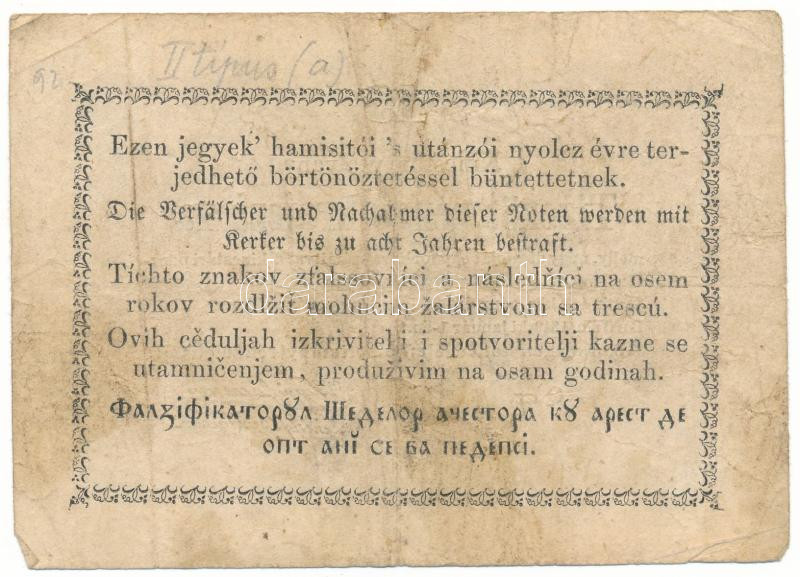 92
II típus (a)
Ezen jegyek' hamisitói 's utánzói nyolcz évre ter-
jedhető börtönöztetéssel büntettetnek.
Die Verfälscher und Nachahmer dieser Noten werden mit
Kerker bis zu acht Jahren bestraft.
Tíchto znakov zfalssovňíci a následňíci na osem
rokov rozdlžiť mohúcim žalárstvom sa trescú.
Ovih cěduljah izkrivitelji i spotvoritelji kazne se
utamničenjem, produživim na osam godinah.
Фалзіфікаторꙋл Шеделор ачестора кꙋ арест де
опт ані се ва педепсі.
darabanth